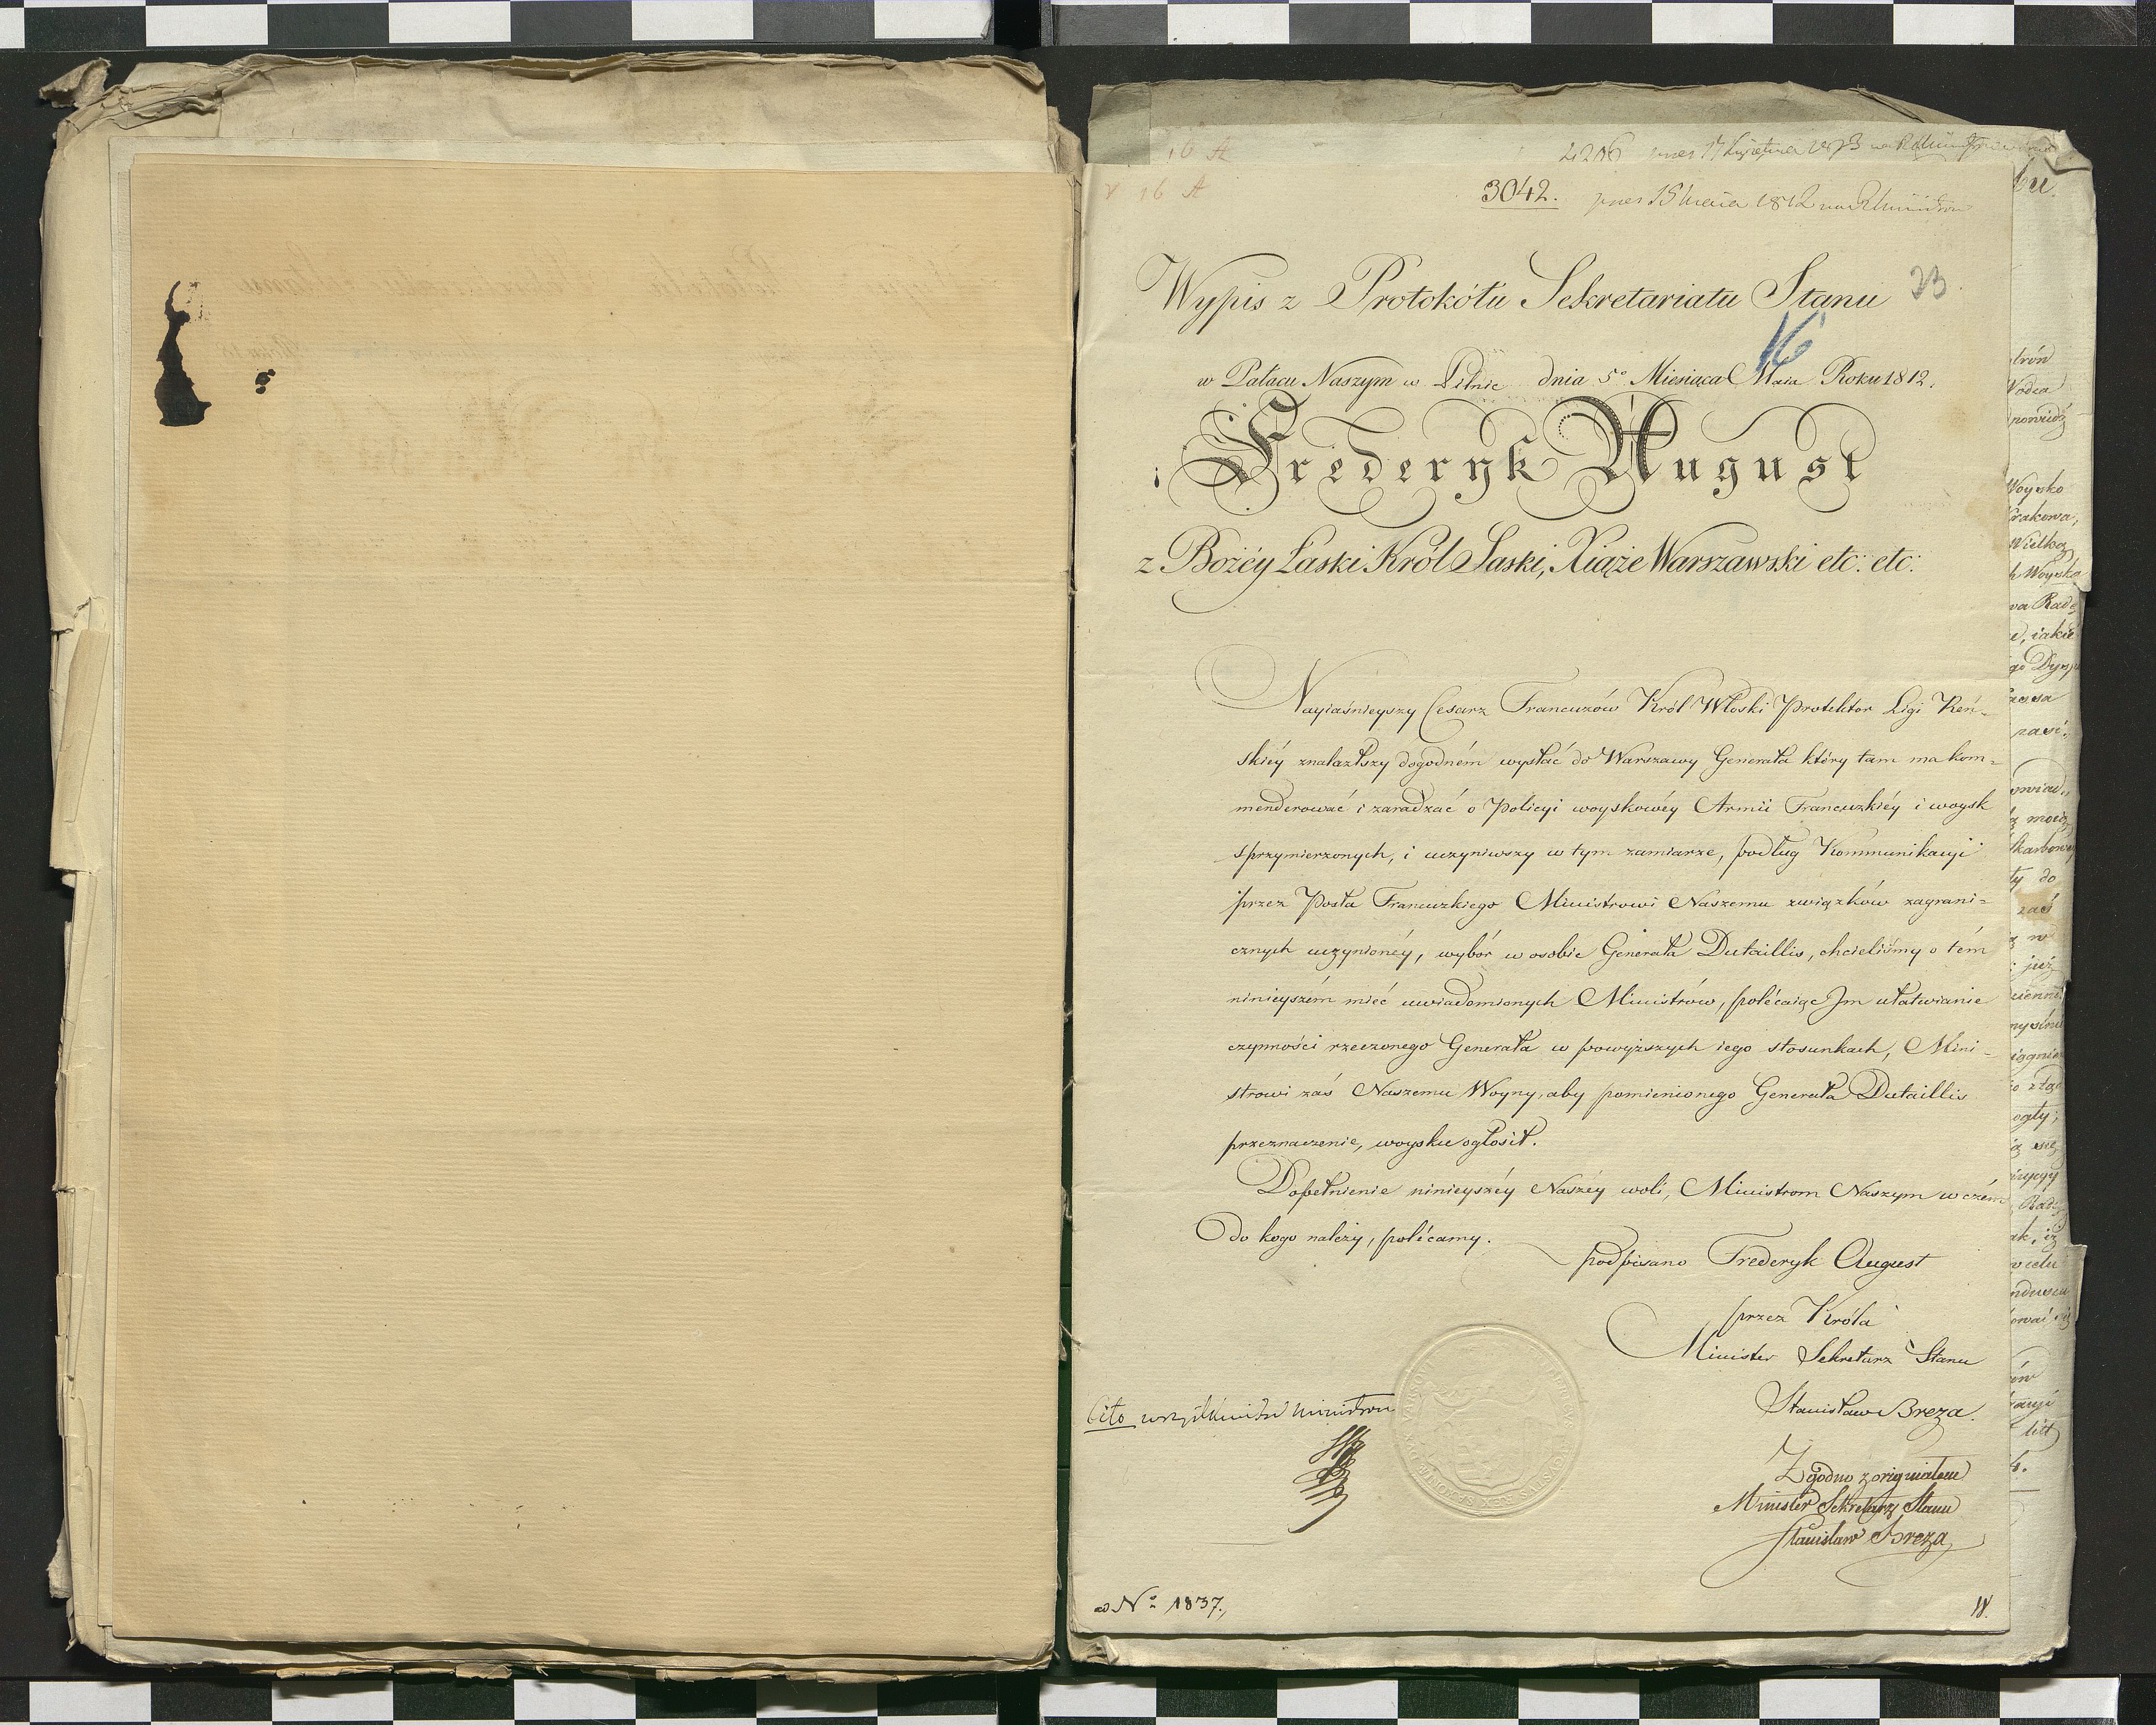 16 A
4206
16 A
3042.
Wypis z Protokółu Sekretariatu Stanu
23.
16
w Pałacu Naszym w Pilnic dnia 5º Miesiąca Maia Roku 1812.
Fryderyk August
z Bożéy Łaski Król Saski, Xiąże Warszawski etc: etc:
Nayiaśnieyszy Cesarz Francuzów Król Włoski Protektor Ligi Reń-
skiéy znalazłszy dogodném wysłać do Warszawy Generała który tam ma kom-
menderować i zaradzać o Policyi woyskowéy Armii Francuzkiéy i woysk
sprzymierzonych, i uczyniwszy w tym zamiarze, podług Kommunikacyi
przez Posła Francuzkiego Ministrowi Naszemu związków zagrani-
cznych uczynionéy, wybór w osobie Generała Dutaillis, chcieliśmy o tém
ninieyszém mieć uwiadomionych Ministrów, polécaiąc Im ułatwianie
czynności rzeczonego Generała w powyższych iego stosunkach, Mini-
strowi zaś Naszemu Woyny, aby pomienionego Generała Dutaillis
przeznaczenie, woysku ogłosił.
Dopełnienie ninieyszéy Naszéy woli, Ministrom Naszym w czém
do kogo należy, polécamy.
podpisano Frederyk August
przez Króla
Minister Sekretarz Stanu
Stanisław Breza.
Cito wszystkim
Zgodno z originałem
Minister Sekretarz Stanu
Stanisław Breza
ad Nº 1837.